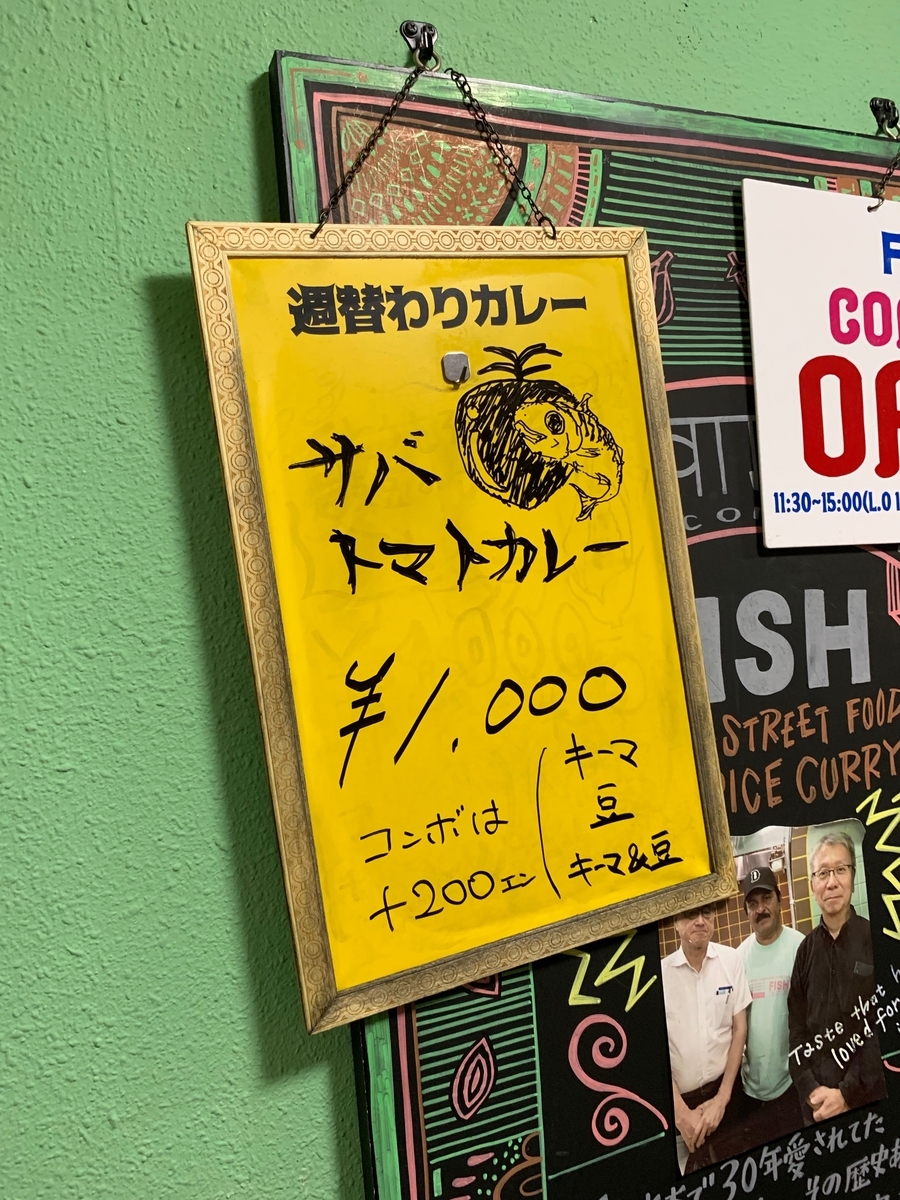 週替わりカレー
サバ
トマトカレー
¥1,000
コンボは
+200エン
キーマ
豆
キーマ&豆
11:30~15:00(L.O
ISH
STREET FOOD
ICE CURRY
FISH
Taste that
loved for
30年愛されてた
の歴史